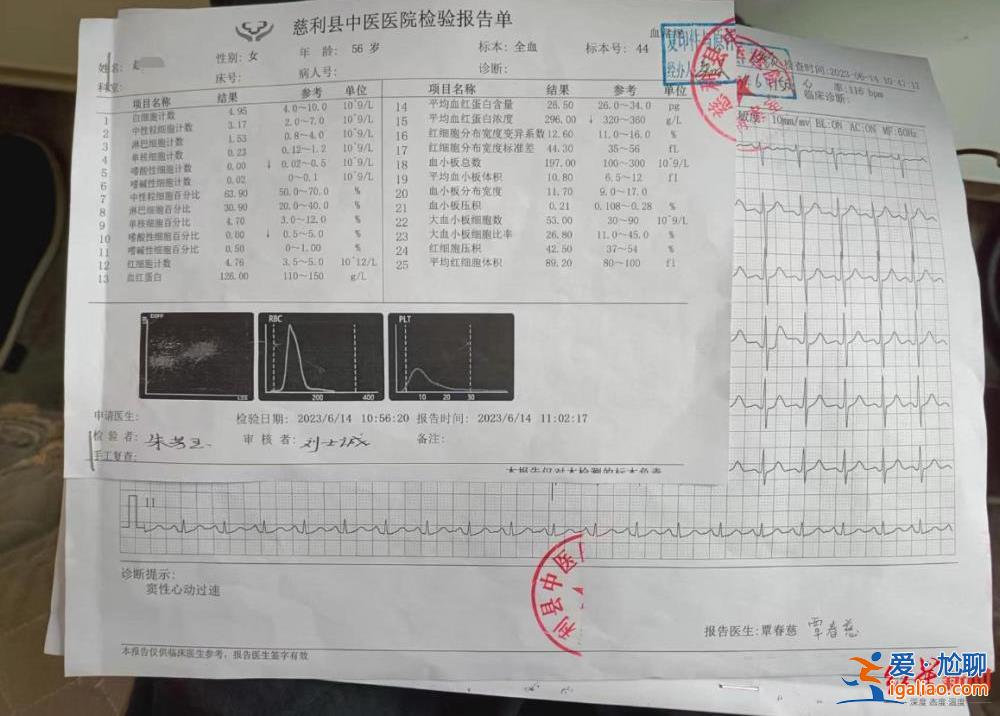 慈利县中医医院检验报告单
姓名:
性别: 女
年 龄: 56 岁
标本: 全血
标本号: 44
科室:
床号:
病人号:
诊断:
项目名称 结果 参考 单位
1 白细胞计数 4.95 4.0~10.0 10^9/L
2 中性粒细胞计数 3.17 2.0~7.0 10^9/L
3 淋巴细胞计数 1.53 0.8~4.0 10^9/L
4 单核细胞计数 0.23 0.12~1.2 10^9/L
5 嗜酸性细胞计数 0.00 ↓ 0.02~0.5 10^9/L
6 嗜碱性细胞计数 0.02 0~0.1 10^9/L
7 中性粒细胞百分比 63.90 50.0~70.0 %
8 淋巴细胞百分比 30.90 20.0~40.0 %
9 单核细胞百分比 4.70 3.0~12.0 %
10 嗜酸性细胞百分比 0.00 ↓ 0.5~5.0 %
11 嗜碱性细胞百分比 0.50 0~1.00 %
12 红细胞计数 4.76 3.5~5.0 10^12/L
13 血红蛋白 126.00 110~150 g/L
项目名称 结果 参考 单位
14 平均血红蛋白含量 26.50 26.0~34.0 pg
15 平均血红蛋白浓度 296.00 ↓ 320~360 g/L
16 红细胞分布宽度变异系数 12.60 11.0~16.0 %
17 红细胞分布宽度标准差 44.30 35~56 fL
18 血小板总数 197.00 100~300 10^9/L
19 平均血小板体积 10.80 6.5~12 fl
20 血小板分布宽度 11.70 9.0~17.0
21 血小板压积 0.21 0.108~0.28 %
22 大血小板细胞数 53.00 30~90 10^9/L
23 大血小板细胞比率 26.80 11.0~45.0 %
24 红细胞压积 42.50 37~54 %
25 平均红细胞体积 89.20 80~100 fl
DIFF
RBC
200 400
PLT
10 20 30
申请医生:
检验日期: 2023/6/14 10:56:20 报告时间: 2023/6/14 11:02:17
检 验 者:
审 核 者:
备注:
手工复查:
本报告仅对本检测的标本负责
复印件与原件
经办人
检查时间:2023-06-14 10:47:17
心 率:116 bpm
临床诊断:
10mm/mv BL:ON AC:ON MF:60Hz
II
利县中医
诊断提示:
窦性心动过速
报告医生: 覃春慈 覃春慈
本报告仅供临床医生参考, 报告医生签字有效
爱·尬聊
igaliao.com
深度 态度 温度